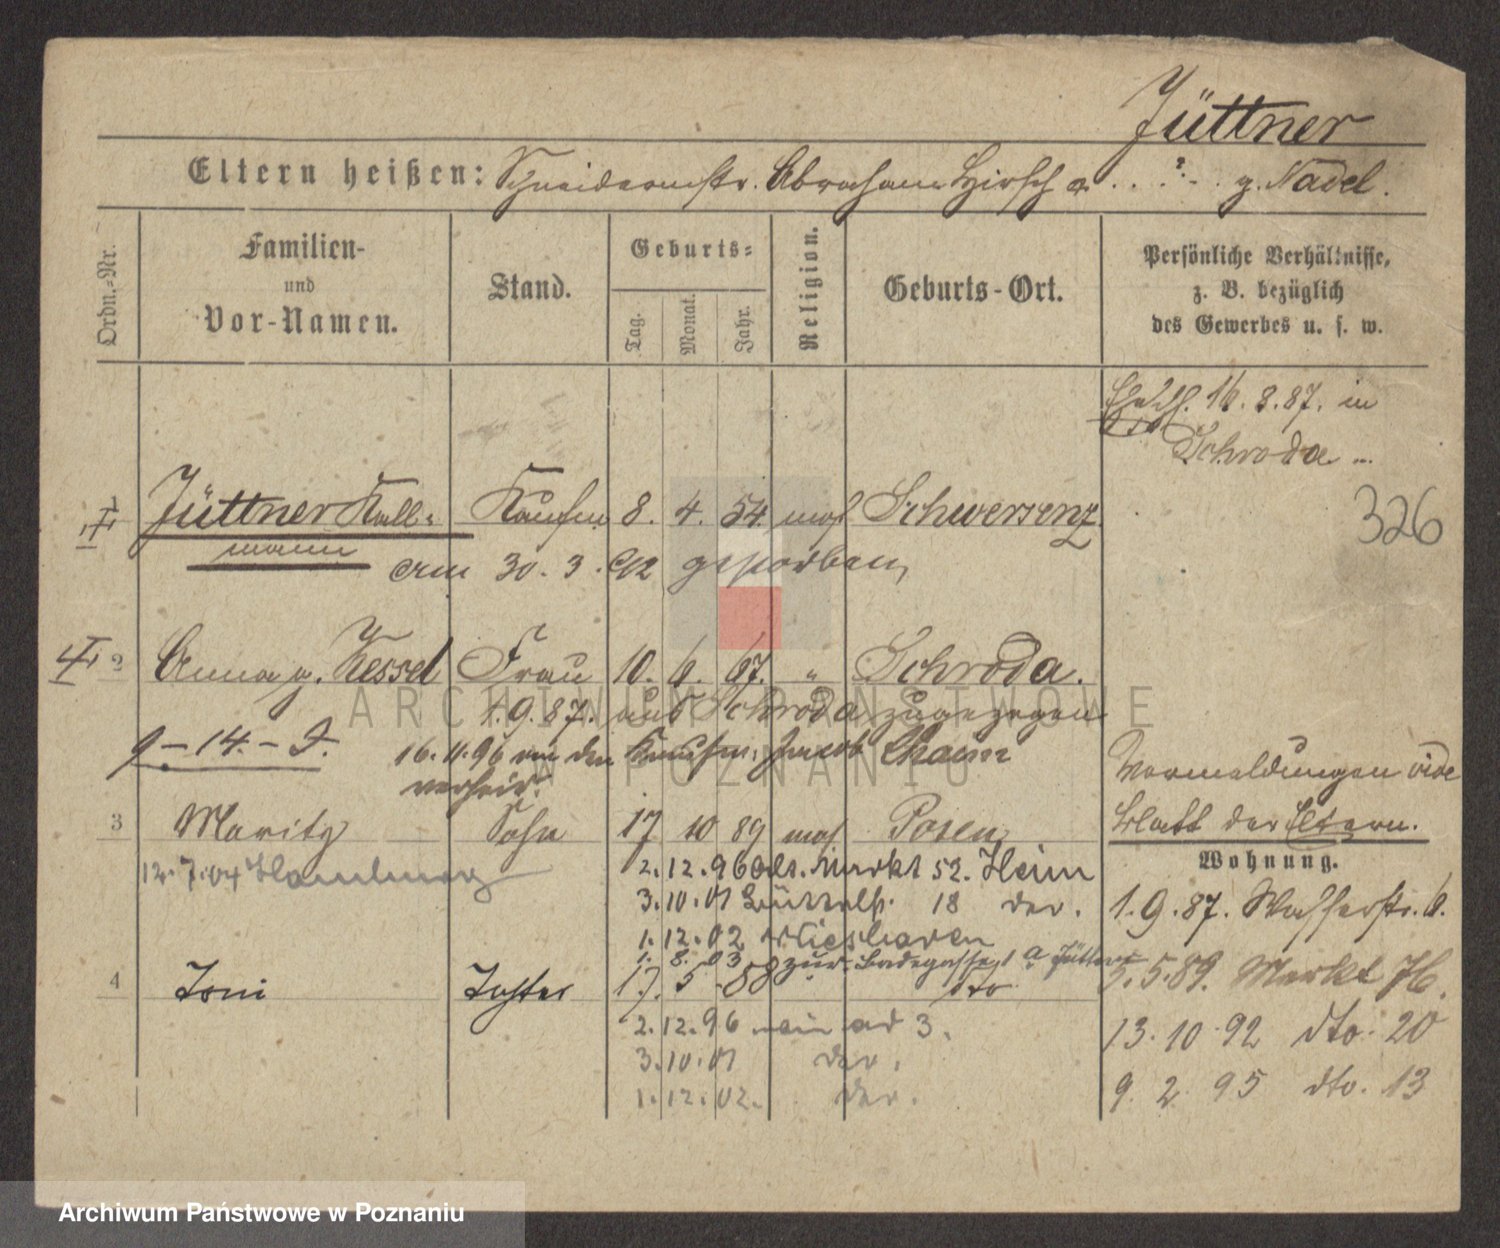 Jüttner
Eltern heißen: Schneidermstr. Abraham Hirsch u. . . ? . . g. Nadel.
Ordn.-Nr.
Familien-
und
Vor-Namen.
Stand.
Geburts-
Tag.
Monat.
Jahr.
Religion.
Geburts-Ort.
Persönliche Verhältnisse,
z. B. bezüglich
des Gewerbes u. s. w.
16.8.87. in
Schroda
326
1 Jüttner Kall-
mann
Kaufm 8. 4. 54 mos Schwersenz
am 30.3.92 gestorben,
2 Anna g. Kessel Frau 10. 6. 67. " Schroda.
1.9.87. aus Schroda zugezogen
9-14.-J.
16.11.96 an den Kaufm. Jacob Chaim
verheir.
3 Moritz Sohn 17 10 89 mos Posen
12.7.04 Hamburg
2.12.96 Alt. Markt 52. Heim
3.10.01 Büttelst. 18 der.
1.12.02 Wieshaven
1. 8. 03 zur. Badegasse 1 a Jüttner
4 Toni Tochter 17. 5 88 dto
2.12.96 wie ad 3.
3.10.01 der.
1.12.02. der.
Vermeldungen vide
Blatt der Eltern.
Wohnung.
1.9.87. Wasserstr. 6.
5.5.89. Markt 76.
13.10.92 dto. 20
9. 2. 95 dto. 13
ARCHIWUM PAŃSTWOWE
W POZNANIU
Archiwum Państwowe w Poznaniu